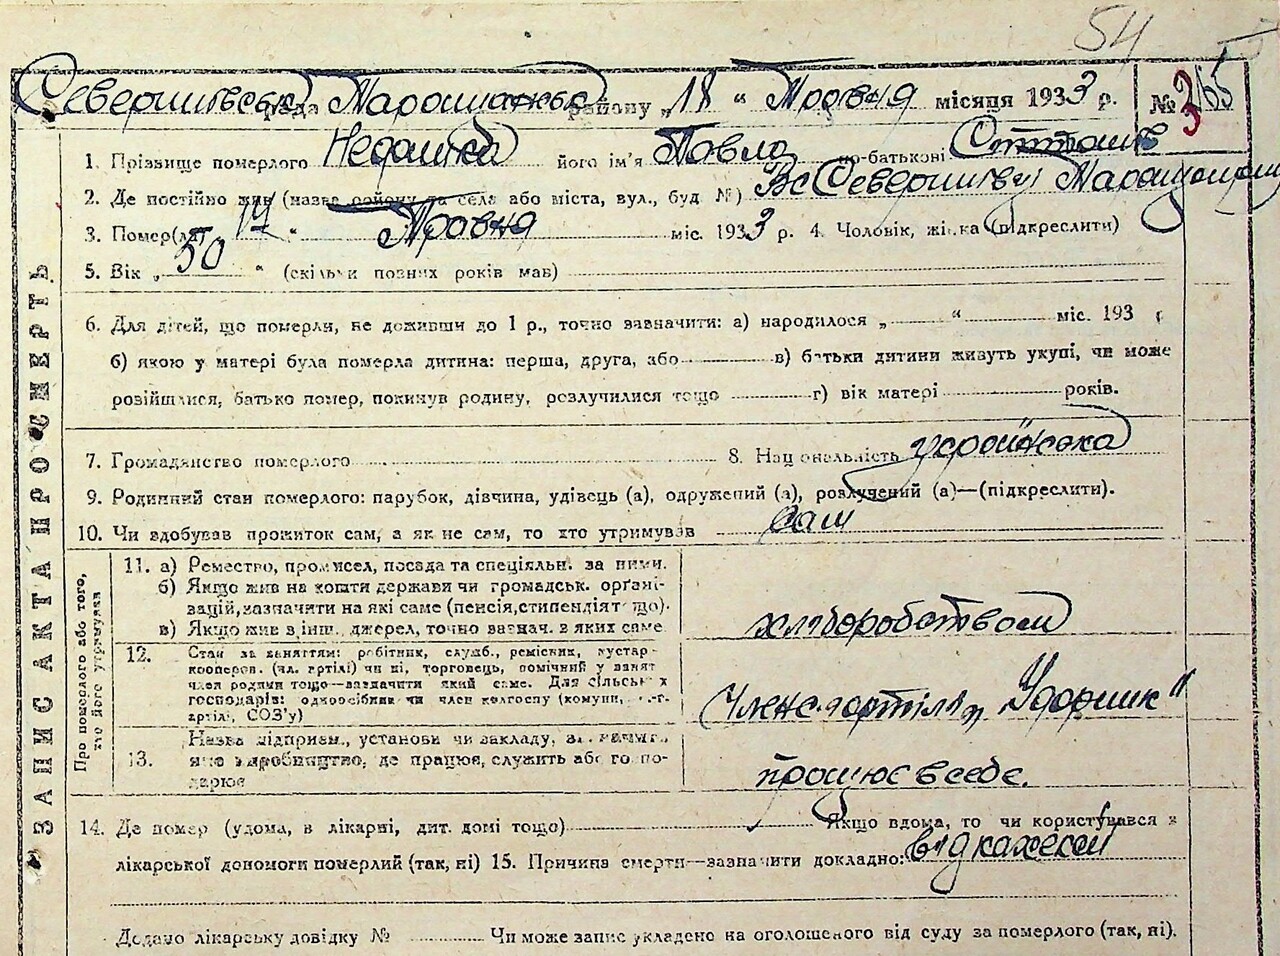 54
Северинівська рада Таращанськ району „18 “ Травня місяця 1933 р. № 365
1. Прізвище померлого Недашків його ім'я Павло по-батькові
2. Де постійно жив (назва району та села або міста, вул., буд №) В с Северинівці
3. Помер(ла) 17 “ Травня міс. 1933 р. 4. Чоловік, жінка (підкреслити)
5. Вік „ 50 “ (скільки повних років мав)
6. Для дітей, що померли, не доживши до 1 р., точно зазначити: а) народилося „ “ міс. 193 р
б) якою у матері була померла дитина: перша, друга, або в) батьки дитини живуть укупі, чи може
розійшлися, батько помер, покинув родину, розлучилися тощо г) вік матері років.
7. Громадянство померлого 8. Національність українська
9. Родинний стан померлого: парубок, дівчина, удівець (а), одружений (а), розлучений (а)—(підкреслити).
10. Чи здобував прожиток сам, а як не сам, то хто утримував сам
ЗАПИС АКТА ПРО СМЕРТЬ
Про померлого або того, хто його утримував
11. а) Ремество, промисел, посада та спеціяльн. за ними.
б) Якщо жив на кошти держави чи громадськ. органі-
зацій, зазначити на які саме (пенсія, стипендія тощо).
в) Якщо жив з інш. джерел, точно зазнач. з яких саме
хліборобством
12. Стан за заняттям: робітник, служб., ремісник, кустар-
кооперов. (чл. артілі) чи ні, торговець, помічний у занят
член родини тощо—зазначити який саме. Для сільськ х
господарів: одноосібник чи член колгоспу (комуни, с.-г.
артілі, СОЗ'у)
Член с.г артілі „Ударник"
13. Назва підприєм., установи чи закладу, зазначити,
яке виробництво, де працює, служить або госпо-
дарює
працює в себе.
14. Де помер (удома, в лікарні, дит. домі тощо) Якщо вдома, то чи користувався з
лікарської допомоги померлий (так, ні) 15. Причина смерти—зазначити докладно: від кахексії
Додано лікарську довідку № Чи може запис укладено на оголошеного від суду за померлого (так, ні).